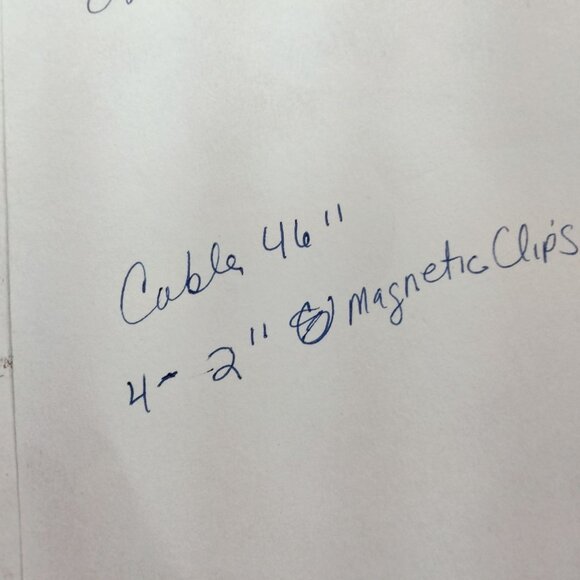 Cable 46"
4- 2" Magnetic Clip's